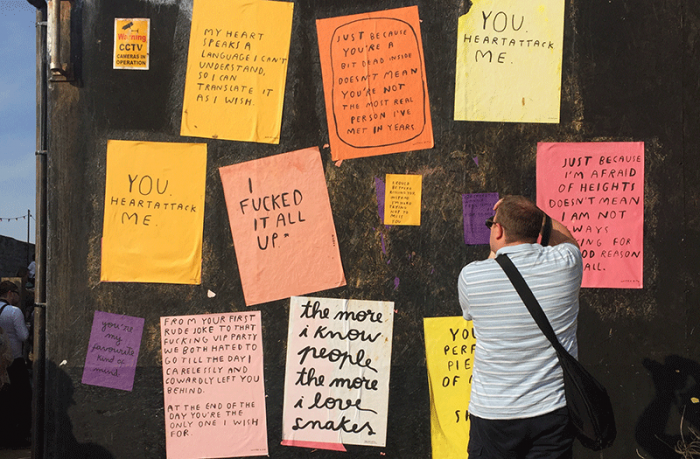 Warning
CCTV
CAMERAS IN
OPERATION
MY HEART
SPEAKS A
LANGUAGE I CAN'T
UNDERSTAND,
SO I CAN
TRANSLATE IT
AS I WISH.
JUST BECAUSE
YOU'RE A
BIT DEAD INSIDE
DOESN'T MEAN
YOU'RE NOT
THE MOST REAL
PERSON I'VE
MET IN YEARS
YOU.
HEARTATTACK
ME.
YOU.
HEARTATTACK
ME.
I
FUCKED
IT ALL
UP.
JUST BECAUSE
I'M AFRAID
OF HEIGHTS
DOESN'T MEAN
I AM NOT
WAYS
ING FOR
OD REASON
ALL.
you're
my
favourite
kind of
mind
FROM YOUR FIRST
RUDE JOKE TO THAT
FUCKING VIP PARTY
WE BOTH HATED TO
GO TILL THE DAY I
CARELESSLY AND
COWARDLY LEFT YOU
BEHIND.
AT THE END OF THE
DAY YOU'RE THE
ONLY ONE I WISH
FOR.
the more
i know
people
the more
i love
snakes
YOU
PERF
PIE
OF